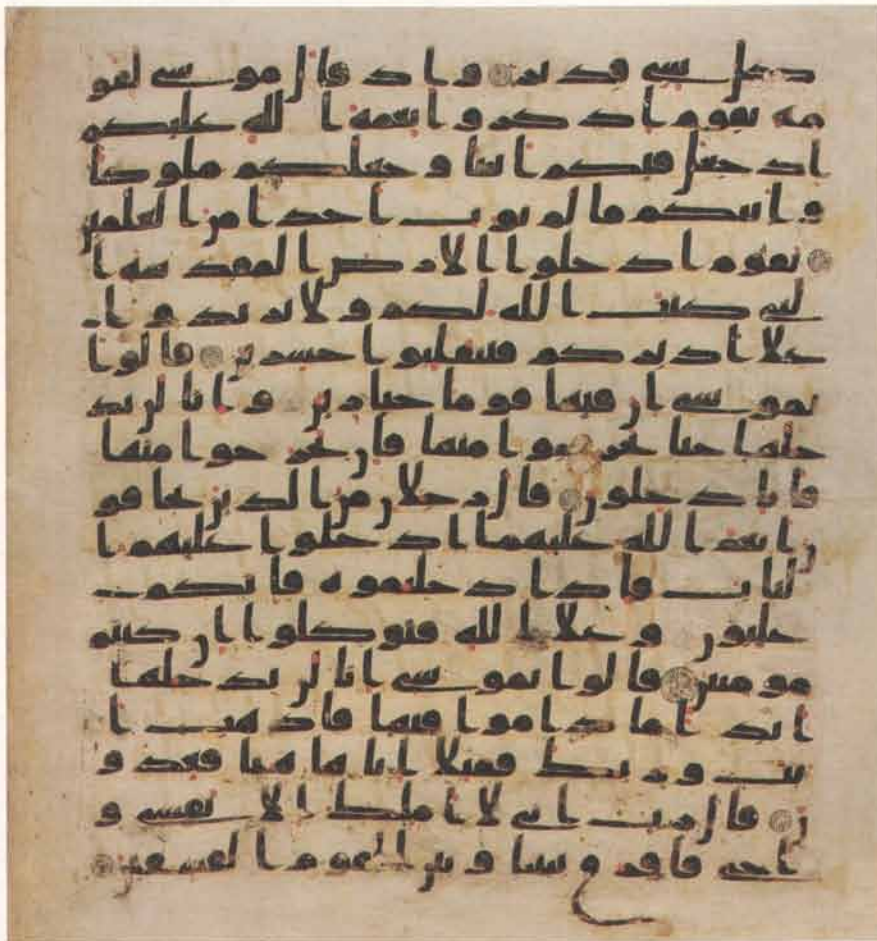 كل شى قدير و اذ قال موسى لقو
مه يقوم اذكروا نعمة الله عليكم
اذ جعل فيكم انبيا و جعلكم ملوكا
و اتيكم ما لم يوت احدا من العلمين
يقوم ادخلوا الارض المقدسة ا
لتى كتب الله لكم ولا ترتدوا
علا ادبركم فتنقلبوا خسرين قالوا
يموسى ان فيها قوما جبارين و انا لن ند
خلها حتا يخرجوا منها فان يخرجوا منها
فانا دخلون قال رجلان من الذين يخافو
ن انعم الله عليهما ادخلوا عليهم ا
لباب فاذا دخلتموه فانكم
غلبون و علا الله فتوكلوا ان كنتم
مومنين قالوا يموسى انا لن ندخلها
ابدا ما داموا فيها فاذهب ا
نت و ربك فقتلا انا ههنا قعدو
ن قال رب انى لا املك الا نفسى و
اخى فافرق بيننا و بين القوم الفسقين